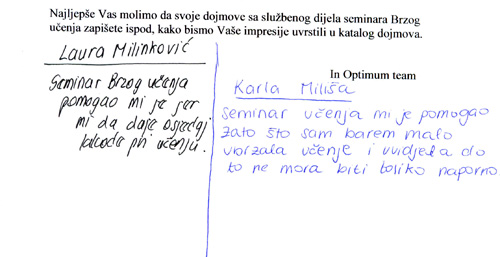 Najljepše Vas molimo da svoje dojmove sa službenog dijela seminara Brzog
učenja zapišete ispod, kako bismo Vaše impresije uvrstili u katalog dojmova.
In Optimum team
Laura Milinković
Seminar Brzog učenja
pomogao mi je jer
mi da daje osjećaj
pri učenju.
Karla Miliša
seminar učenja mi je pomogao
zato što sam barem malo
ubrzala učenje i uvidjela da
to ne mora biti toliko naporno